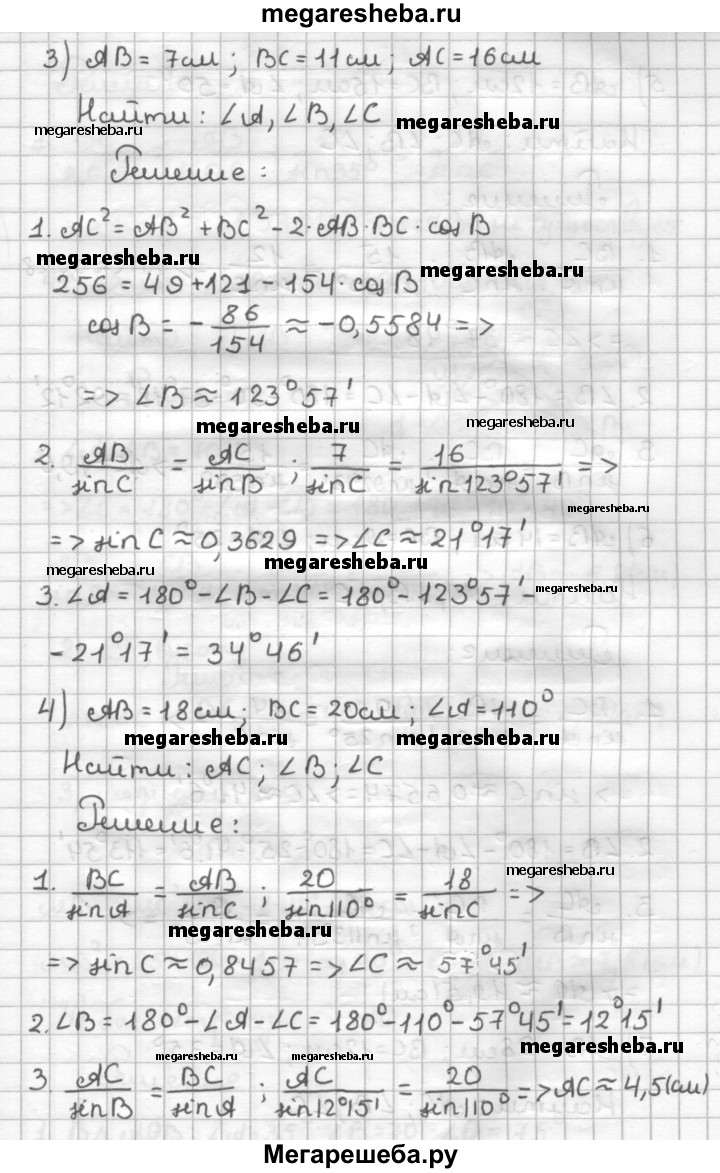 megaresheba.ru
3) AB = 7см; BC = 11см; AC = 16см
Найти: ∠A, ∠B, ∠C megaresheba.ru
megaresheba.ru
Решение:
1. AC² = AB² + BC² - 2·AB·BC·cos B
megaresheba.ru megaresheba.ru
256 = 49 + 121 - 154·cos B
cos B = - 86/154 ≈ -0,5584 =>
=> ∠B ≈ 123°57'
megaresheba.ru megaresheba.ru
2. AB/sin C = AC/sin B ; 7/sin C = 16/sin 123°57' =>
megaresheba.ru
=> sin C ≈ 0,3629 => ∠C ≈ 21°17'
megaresheba.ru megaresheba.ru
3. ∠A = 180° - ∠B - ∠C = 180° - 123°57' -
megaresheba.ru
- 21°17' = 34°46'
4) AB = 18см; BC = 20см; ∠A = 110°
megaresheba.ru megaresheba.ru
Найти: AC; ∠B; ∠C
Решение:
megaresheba.ru
1. BC/sin A = AB/sin C ; 20/sin 110° = 18/sin C =>
megaresheba.ru
=> sin C ≈ 0,8457 => ∠C ≈ 57°45'
2. ∠B = 180° - ∠A - ∠C = 180° - 110° - 57°45' = 12°15'
megaresheba.ru megaresheba.ru megaresheba.ru
3. AC/sin B = BC/sin A ; AC/sin 12°15' = 20/sin 110° => AC ≈ 4,5(см)
Мегарешеба.ру